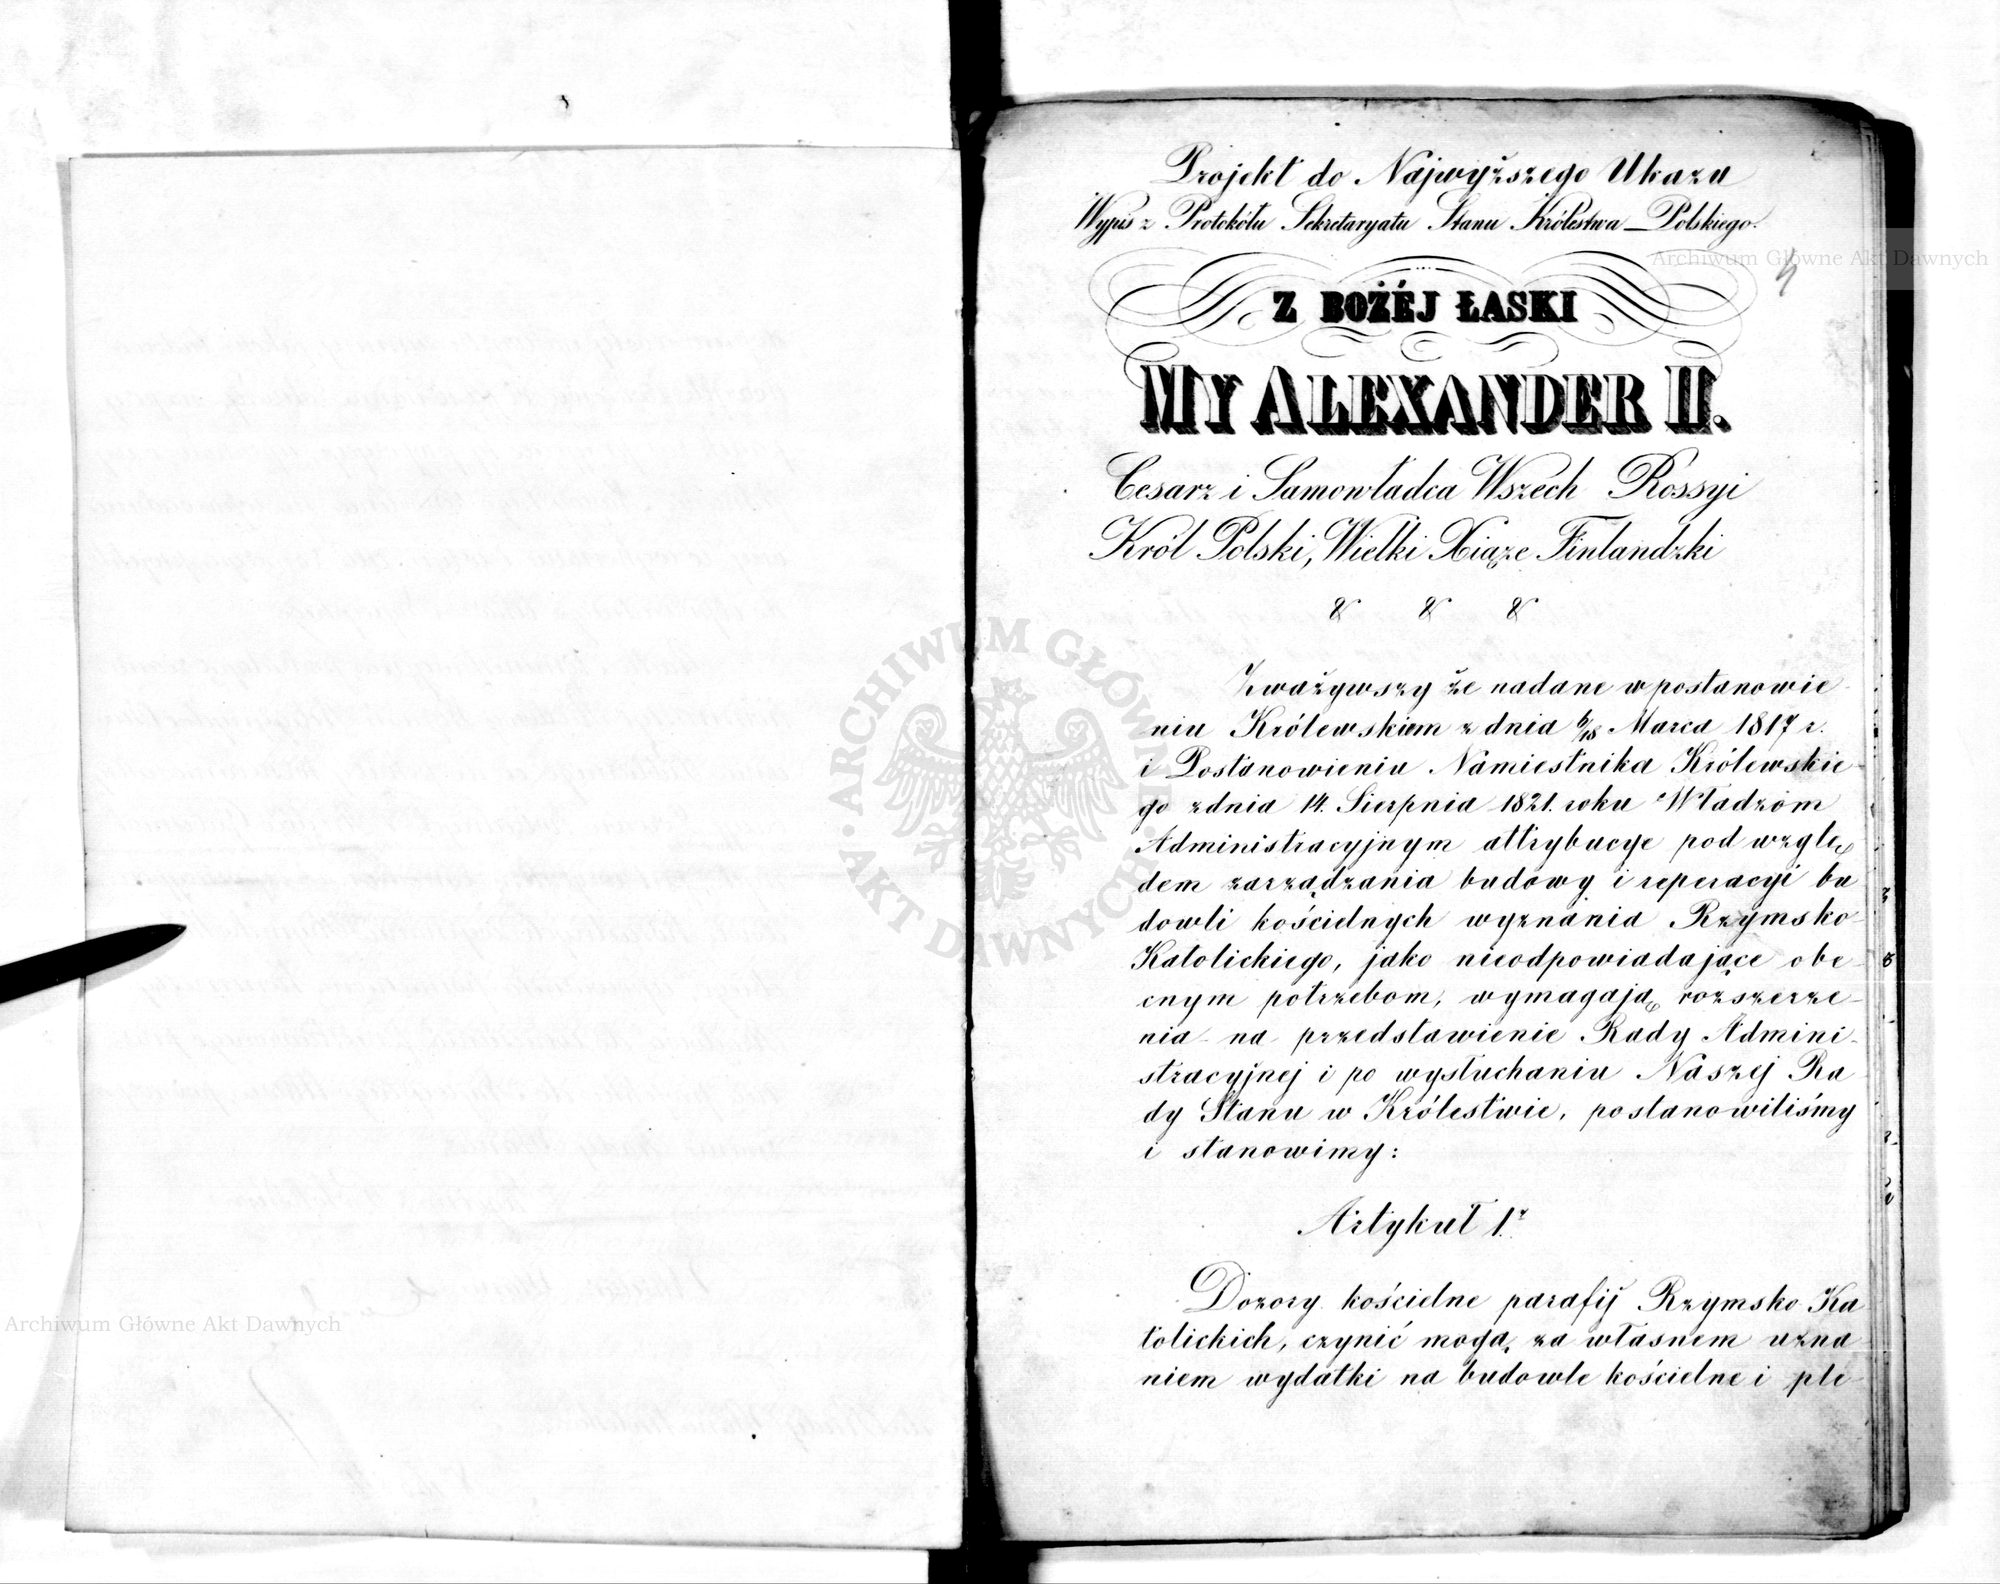 Projekt do Najwyższego Ukazu
Wypis z Protokółu Sekretaryatu Stanu Królestwa Polskiego.
4
Z BOŻÉJ ŁASKI
MY ALEXANDER II.
Cesarz i Samowładca Wszech Rossyi
Król Polski, Wielki Xiąże Finlandzki
& & &
Zważywszy że nadane w postanowie-
niu Królewskiem z dnia 6/18 Marca 1817 r.
i Postanowieniu Namiestnika Królewskie-
go z dnia 14. Sierpnia 1821. roku Władzom
Administracyjnym attrybucye pod wzglę-
dem zarządzania budowy i reperacyi bu
dowli kościelnych wyznania Rzymsko-
Katolickiego, jako nieodpowiadające obe-
cnym potrzebom, wymagają rozszerze-
nia na przedstawienie Rady Admini-
stracyjnej i po wysłuchaniu Naszej Ra-
dy Stanu w Królestwie, postanowiliśmy
i stanowimy:
Artykuł 1.
Dozory kościelne parafij Rzymsko Ka
tolickich, czynić mogą, za własnem uzna
niem wydatki na budowle kościelne i ple-
ARCHIWUM GŁÓWNE
AKT DAWNYCH
Archiwum Główne Akt Dawnych
Archiwum Główne Akt Dawnych